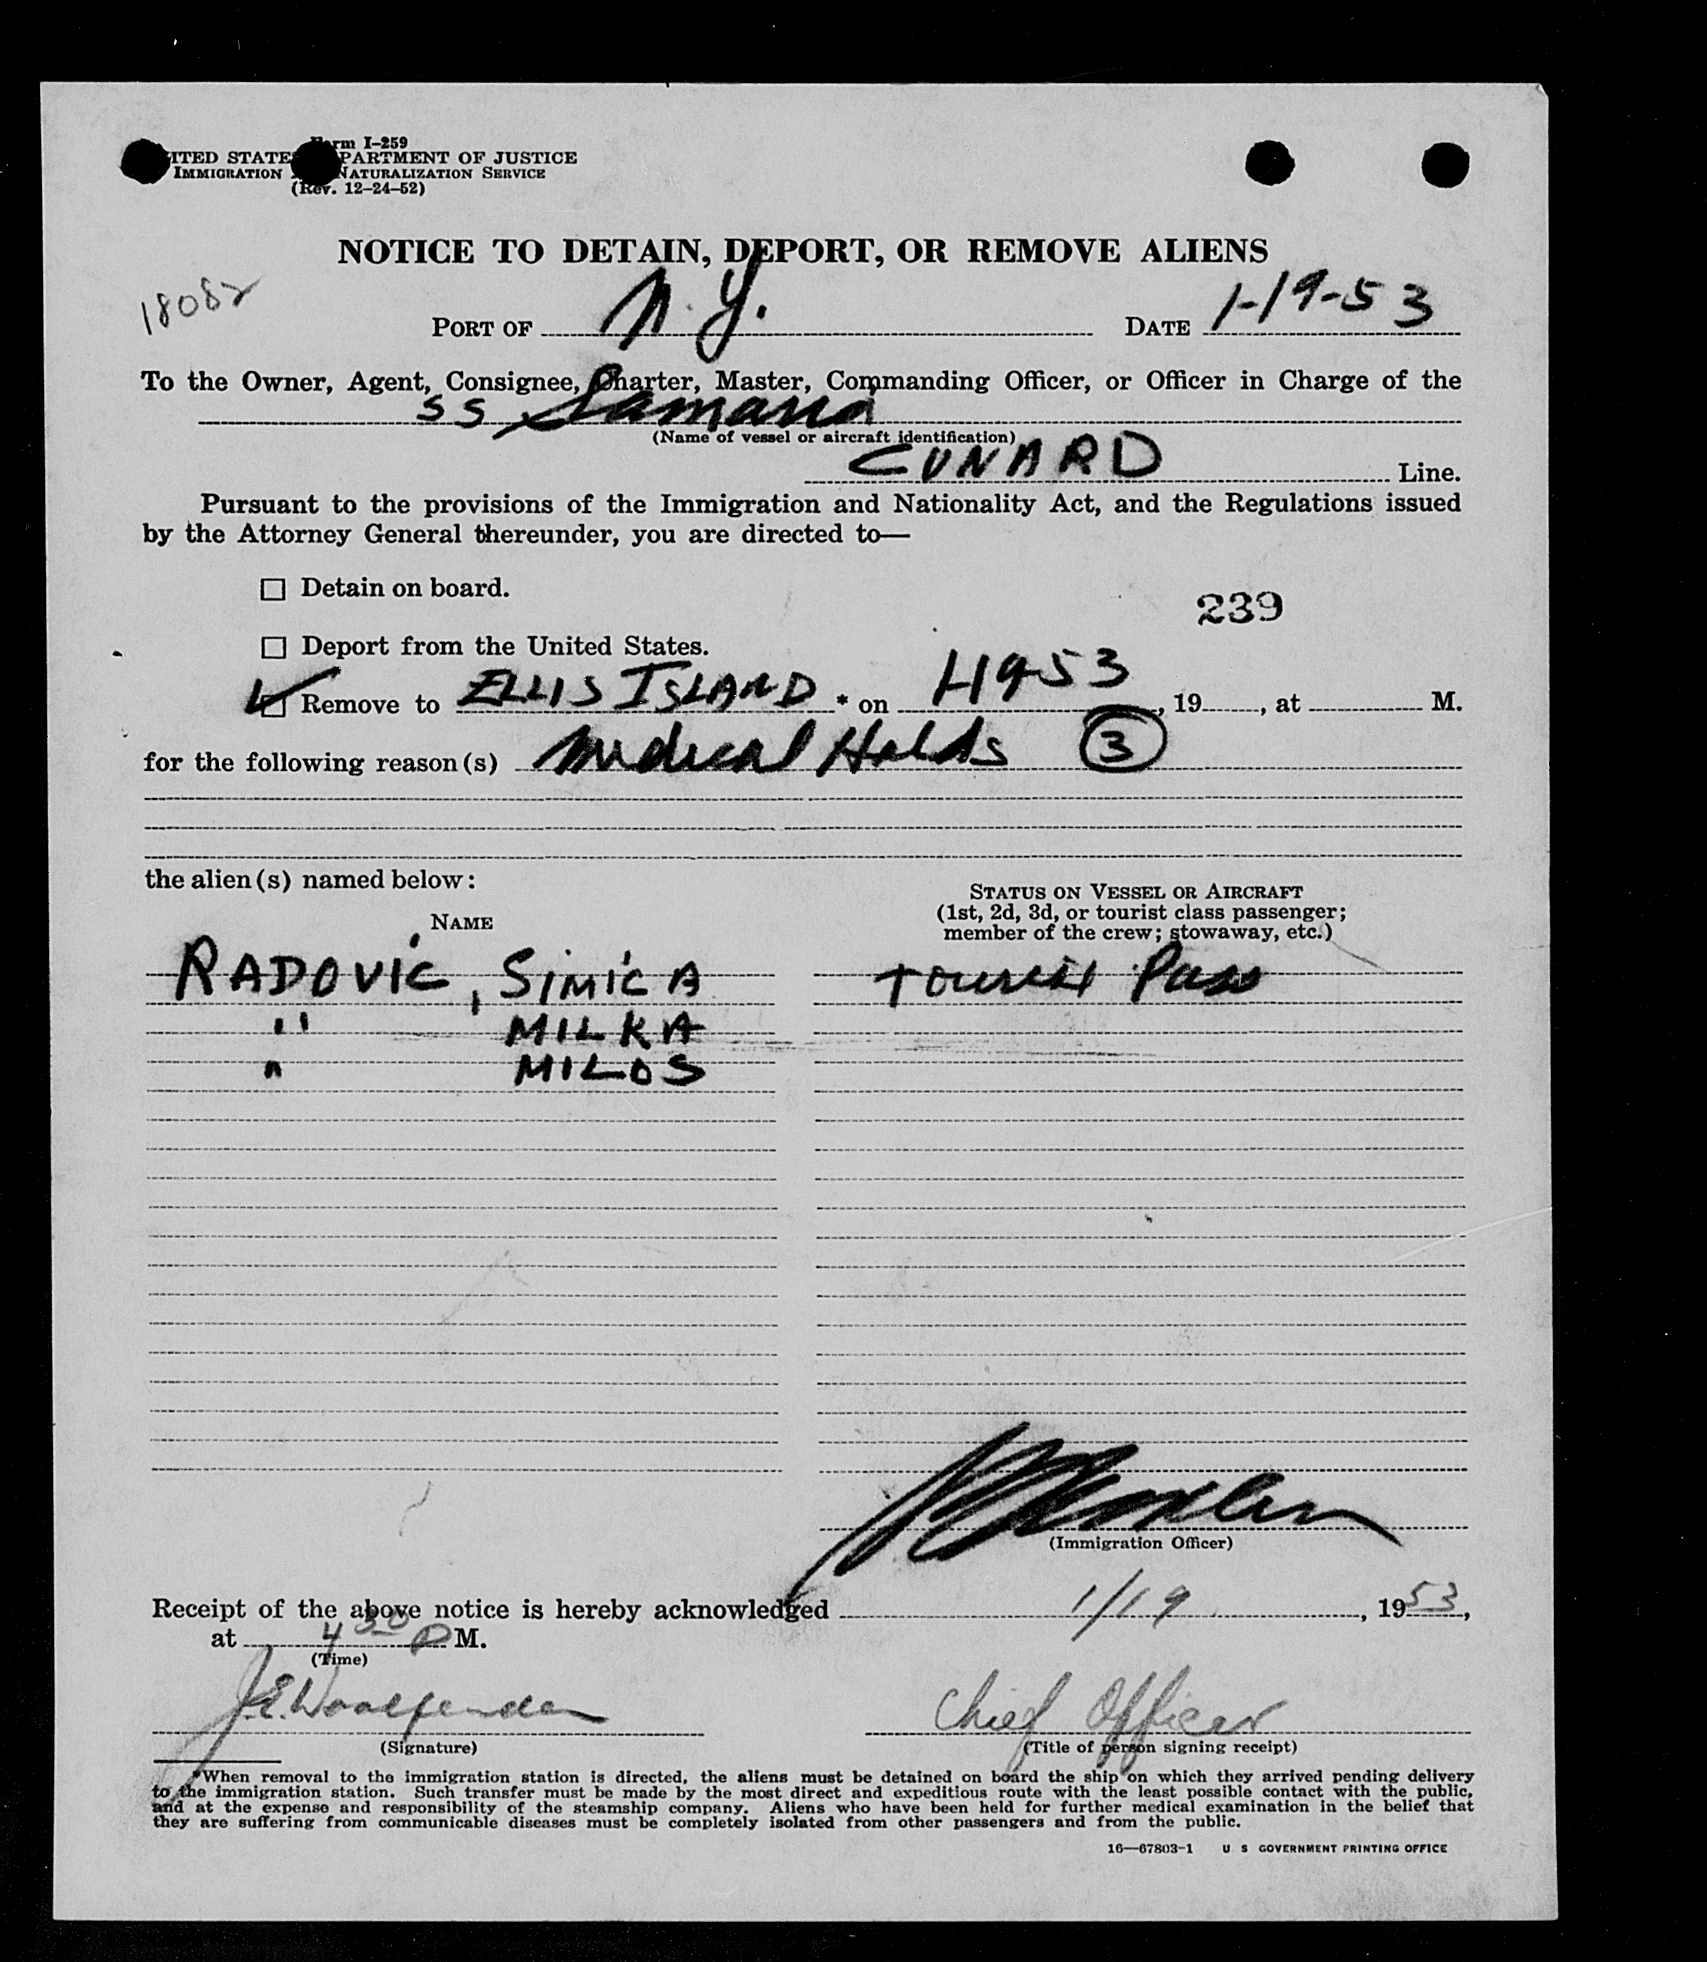 Form I-259
UNITED STATES DEPARTMENT OF JUSTICE
IMMIGRATION NATURALIZATION SERVICE
(Rev. 12-24-52)
NOTICE TO DETAIN, DEPORT, OR REMOVE ALIENS
18082
PORT OF N.Y. DATE 1-19-53
To the Owner, Agent, Consignee, Charter, Master, Commanding Officer, or Officer in Charge of the
SS Samaria
(Name of vessel or aircraft identification)
CUNARD Line.
Pursuant to the provisions of the Immigration and Nationality Act, and the Regulations issued
by the Attorney General thereunder, you are directed to—
☐ Detain on board.
239
☐ Deport from the United States.
☑ Remove to ELLIS ISLAND * on 1-19-53, 19, at M.
for the following reason(s) Medical Holds 3
the alien(s) named below:
NAME
STATUS ON VESSEL OR AIRCRAFT
(1st, 2d, 3d, or tourist class passenger;
member of the crew; stowaway, etc.)
RADOVIC, SIMICA Tourist Pass
" MILKA
" MILOS
(Immigration Officer)
Receipt of the above notice is hereby acknowledged 1/19, 1953,
at 4 30 P M.
(Time)
J.E. Woolfenden Chief Officer
(Signature) (Title of person signing receipt)
*When removal to the immigration station is directed, the aliens must be detained on board the ship on which they arrived pending delivery
to the immigration station. Such transfer must be made by the most direct and expeditious route with the least possible contact with the public,
and at the expense and responsibility of the steamship company. Aliens who have been held for further medical examination in the belief that
they are suffering from communicable diseases must be completely isolated from other passengers and from the public.
16—67803-1 U S GOVERNMENT PRINTING OFFICE